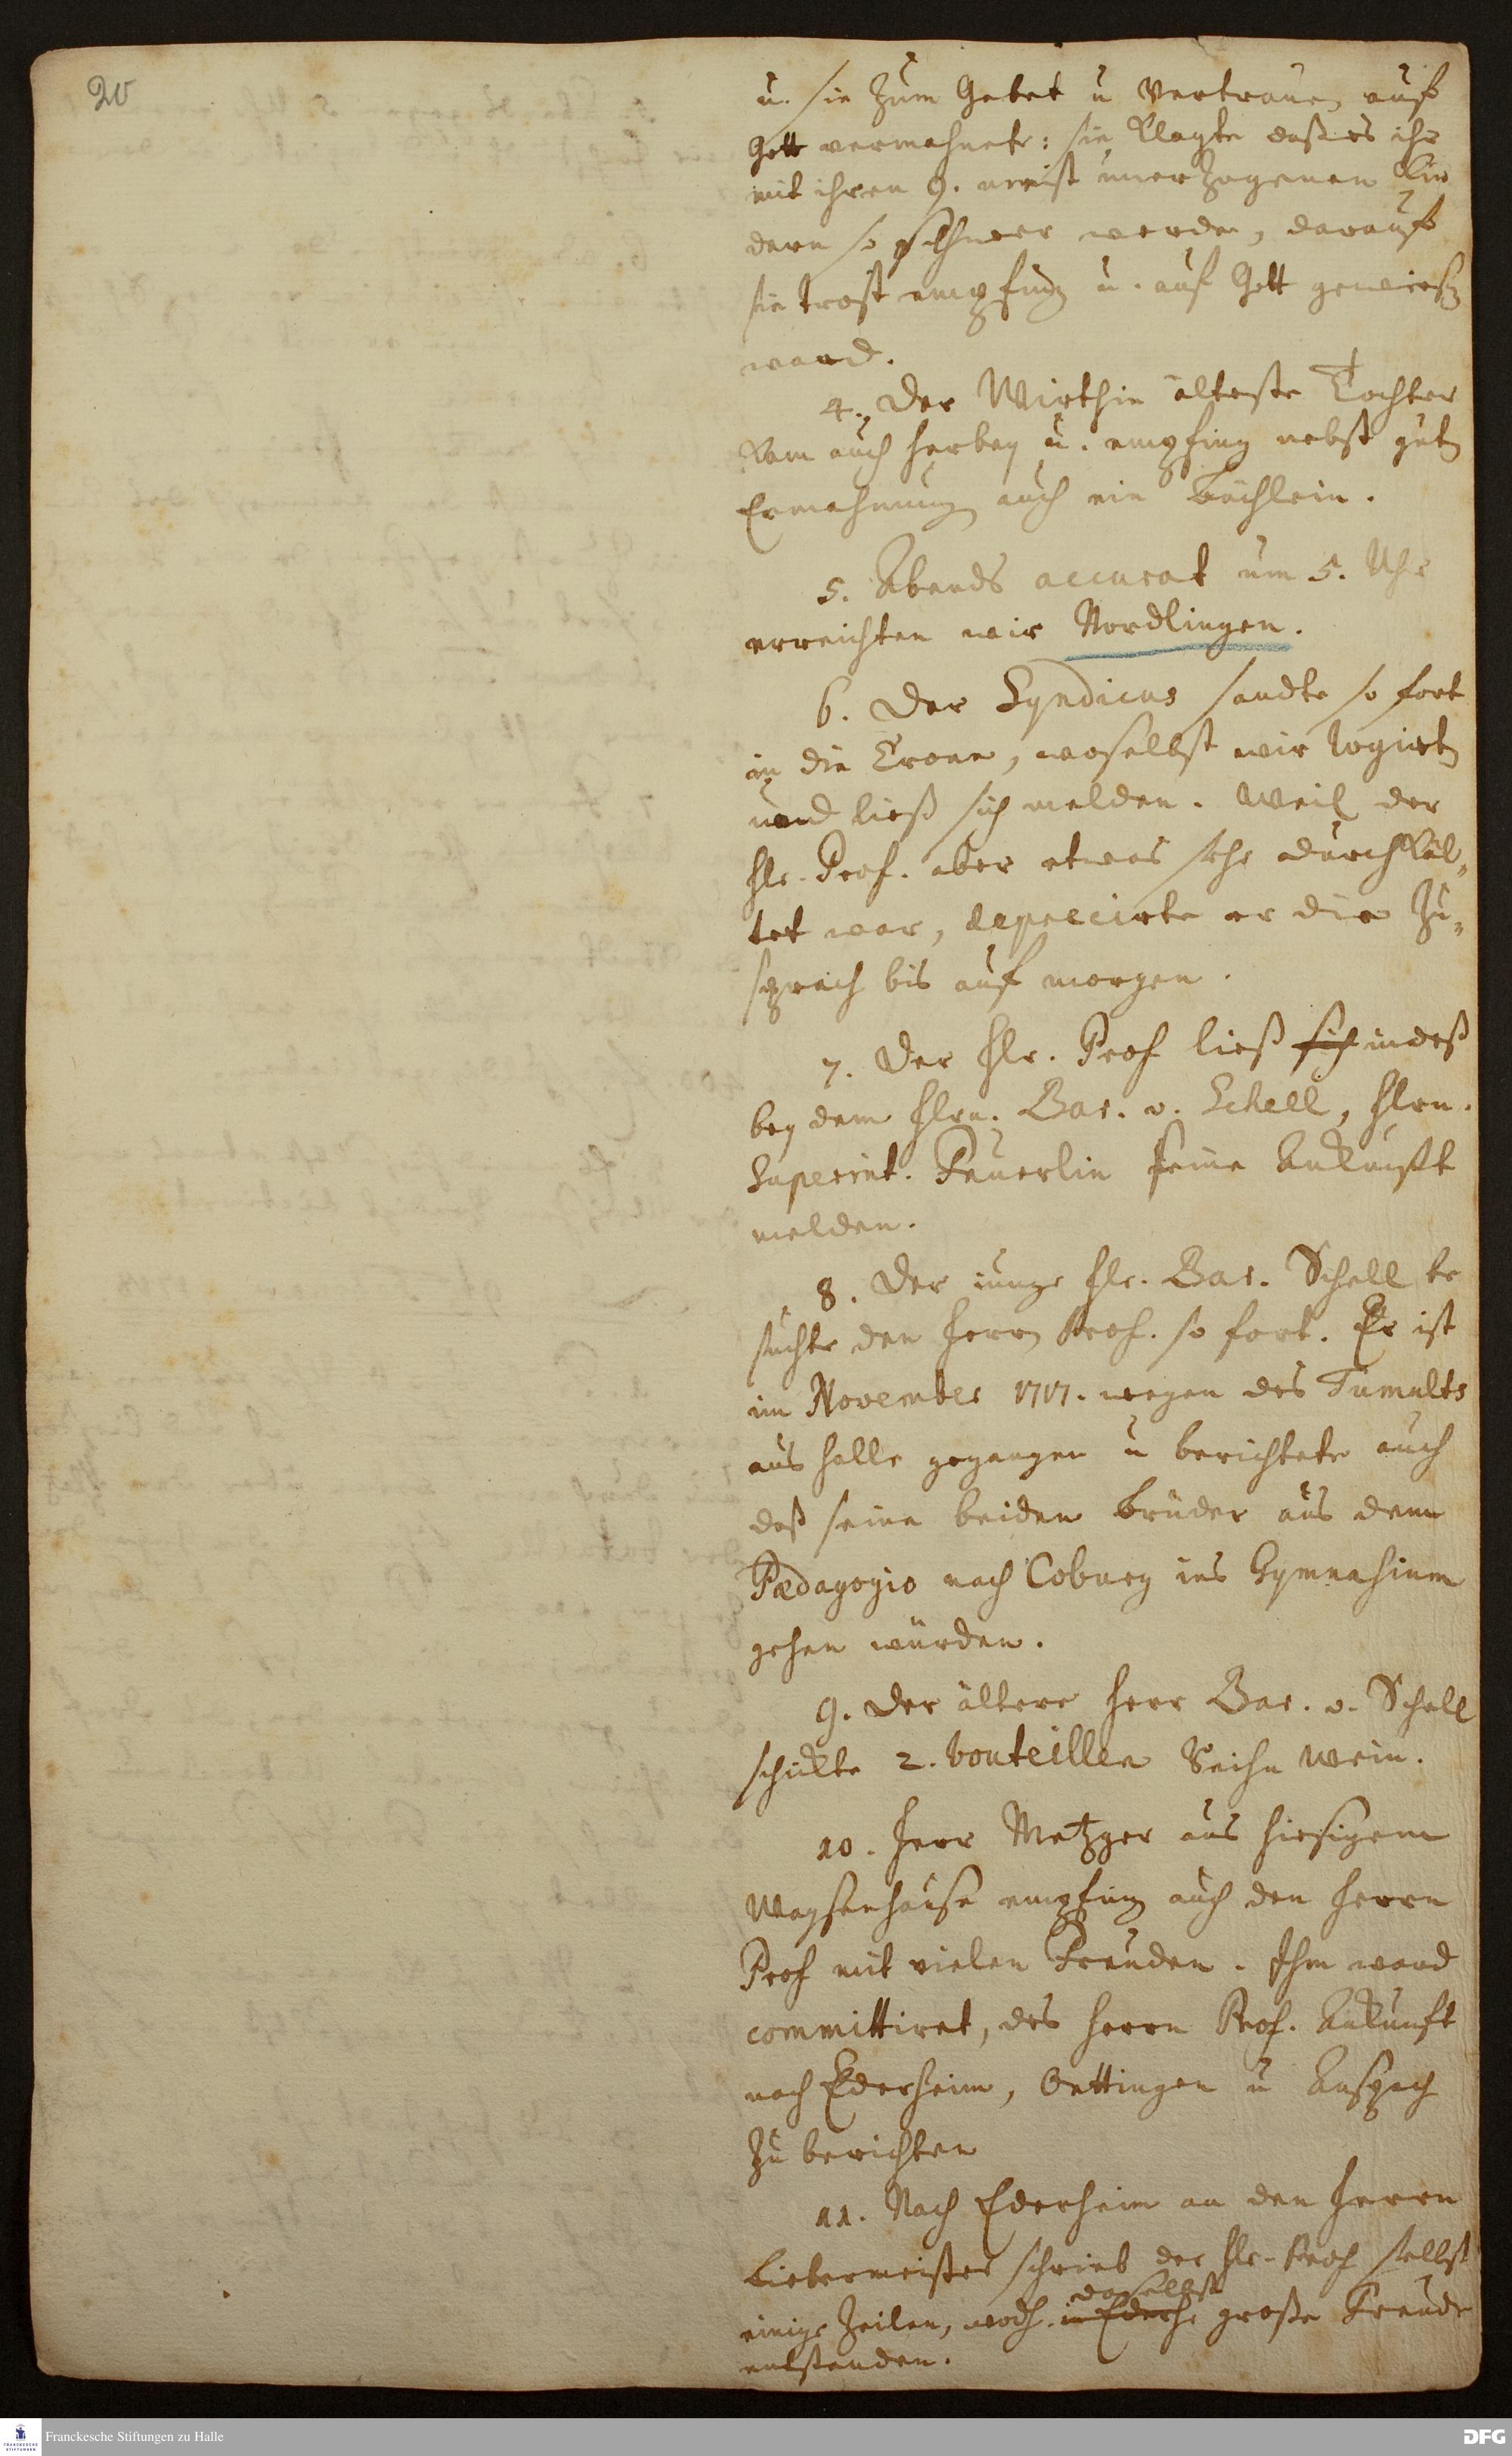 20
u. sie zum Gebet u Vertrauen auf
Gott vermahnete: sie klagte daß es ihr
mit ihren 9. meist unerzogenen Kin
dern so schwer werde, darauf
sie trost empfing u. auf Gott gewiesen
ward.
4. Der Wirthin älteste Tochter
kam auch herbey u. empfing nebst guter
Ermahnung auch ein Büchlein.
5. Abends accurat um 5. Uhr
erreichten wir Nordlingen.
6. Der Syndicus sandte so fort
in die Crone, woselbst wir logirten
und ließ sich melden. Weil der
Hr. Prof. aber etwas sehr durchkäl-
tet war, deprecirte er die Zu-
sprach bis auf morgen.
7. Der Hr. Prof ließ sich indeß
bey dem Hrn. Bar. v. Schell, Hrn.
Superint. Feuerlin seine Ankunfft
melden.
8. Der iunge Hr. Bar. Schell be
suchte den Herrn Prof. so fort. Er ist
im November 1717. wegen des Tumults
aus Halle gegangen u berichtete auch
daß seine beiden Brüder aus dem
Pædagogio nach Coburg ins Gymnasium
gehen würden.
9. Der ältere Herr Bar. v. Schell
schickte 2. bouteillen Wein.
10. Herr Metzger aus hiesigem
Waysenhause empfing auch den Herrn
Prof mit vielen Freuden. Ihm ward
committiret, des Herrn Prof. Ankunft
nach Ederheim, Oettingen u Anspach
zu berichten
11. Nach Ederheim an den Herrn
Liebermeister schrieb der Hr. Prof selbst
einige Zeilen, in Ederhe daselbst große Freude
entstanden.
Franckesche Stiftungen zu Halle
DFG